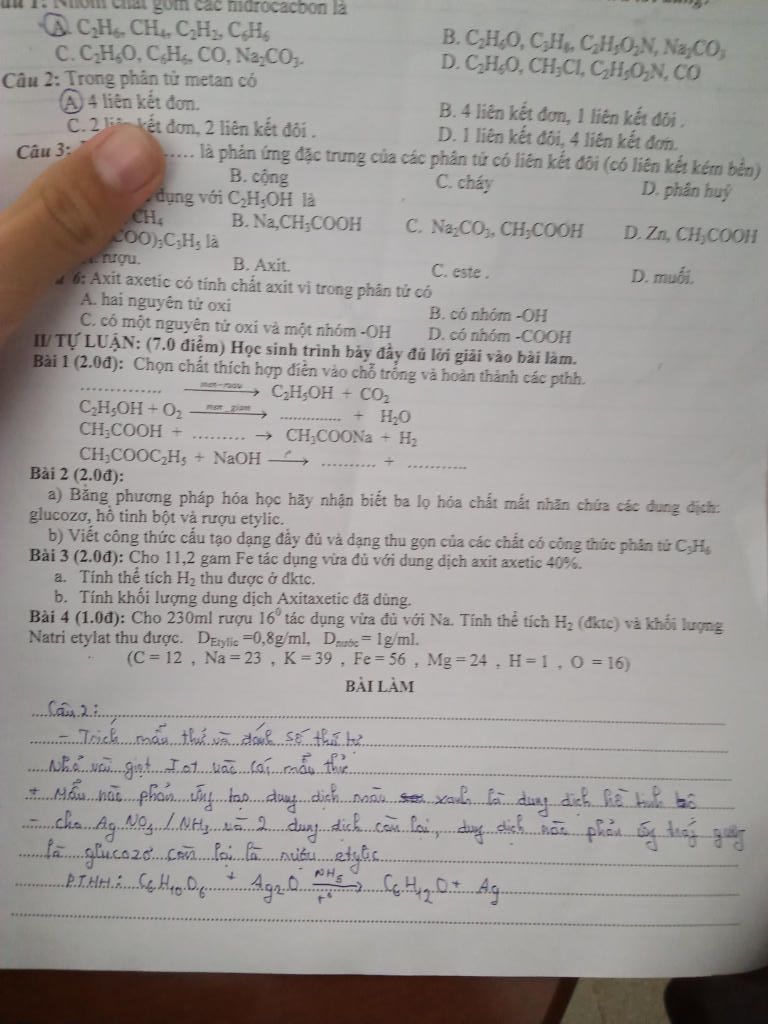 Câu 1: Nhóm chất gồm các hidrocacbon là
A. C₂H₆, CH₄, C₂H₂, C₆H₆ B. C₂H₆O, C₃H₈, C₂H₅O₂N, Na₂CO₃
C. C₂H₆O, C₆H₆, CO, Na₂CO₃. D. C₂H₆O, CH₃Cl, C₂H₅O₂N, CO
Câu 2: Trong phân tử metan có
A 4 liên kết đơn. B. 4 liên kết đơn, 1 liên kết đôi .
C. 2 liên kết đơn, 2 liên kết đôi . D. 1 liên kết đôi, 4 liên kết đơn.
Câu 3: ...... là phản ứng đặc trưng của các phân tử có liên kết đôi (có liên kết kém bền)
B. cộng C. cháy D. phân huỷ
dụng với C₂H₅OH là
CH₄ B. Na,CH₃COOH C. Na₂CO₃, CH₃COOH D. Zn, CH₃COOH
COO)₃C₃H₅ là
rượu. B. Axit. C. este . D. muối.
6: Axit axetic có tính chất axit vì trong phân tử có
A. hai nguyên tử oxi B. có nhóm -OH
C. có một nguyên tử oxi và một nhóm -OH D. có nhóm -COOH
II/ TỰ LUẬN: (7.0 điểm) Học sinh trình bày đầy đủ lời giải vào bài làm.
Bài 1 (2.0đ): Chọn chất thích hợp điền vào chỗ trống và hoàn thành các pthh.
.............. men-rượu → C₂H₅OH + CO₂
C₂H₅OH + O₂ men giam → .............. + H₂O
CH₃COOH + ......... → CH₃COONa + H₂
CH₃COOC₂H₅ + NaOH → .......... + ...........
Bài 2 (2.0đ):
a) Bằng phương pháp hóa học hãy nhận biết ba lọ hóa chất mất nhãn chứa các dung dịch:
glucozơ, hồ tinh bột và rượu etylic.
b) Viết công thức cấu tạo dạng đầy đủ và dạng thu gọn của các chất có công thức phân tử C₃H₆
Bài 3 (2.0đ): Cho 11,2 gam Fe tác dụng vừa đủ với dung dịch axit axetic 40%.
a. Tính thể tích H₂ thu được ở đktc.
b. Tính khối lượng dung dịch Axitaxetic đã dùng.
Bài 4 (1.0đ): Cho 230ml rượu 16⁰ tác dụng vừa đủ với Na. Tính thể tích H₂ (đktc) và khối lượng
Natri etylat thu được. D_Etylic =0,8g/ml, D_nước = 1g/ml.
(C = 12 , Na = 23 , K = 39 , Fe = 56 , Mg = 24 , H = 1 , O = 16)
BÀI LÀM
Câu 2:
- Trích mẫu thử và đánh số thứ tự
Nhỏ vài giọt Iot vào các mẫu thử
+ Mẫu nào phản ứng tạo dung dịch màu xanh là dung dịch hồ tinh bô
- cho AgNO₃/NH₃ và 2 dung dịch còn lại, dung dịch nào phản ứng tráng gương
là glucozơ còn lại là rượu etylic
PTHH: C₆H₁₀O₆ + Ag₂O NH₃ t⁰ → C₆H₁₂O + Ag